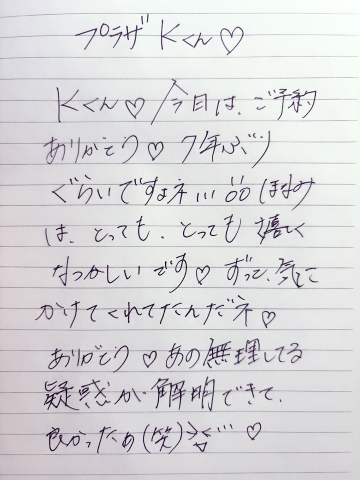 プラザKくん♡
Kくん♡今日は、ご予約
ありがとう♡7年ぶり
ぐらいですよネ!!!
は、とっても、とっても嬉しく
なつかしいです♡ずっと、気に
かけてくれてたんだネ♡
ありがとう♡あの無理してる
疑惑が解明できて、
良かったぁ(笑)♡